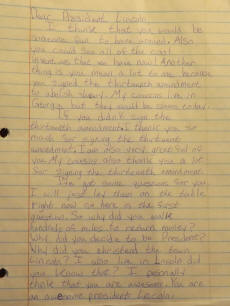 Dear President Lincoln,
I think that you would be
someone fun to have around. Also
you could see all of the cool
inventions that we have now! Another
thing is you mean a lot to me because
you signed the thirteenth amendment
to abolish slavery. My cousins live in
Georgia but they would be slaves today.
If you didn't sign the
thirteenth amendment. thank you so
much for signing the thirteenth
amendment. I am also very proud of
you. My cousins also thank you a lot
for signing the thirteenth amendment.
I've got some questions for you,
I will just lay them on the table
right now so here is the first
question. So why did you walk
hundreds of miles to return money?
Why did you decide to be President?
Why did you the town
Lincoln? I also live in Lincoln did
you know that? I personally
think that you are awesome. You are
an awesome president Lincoln.